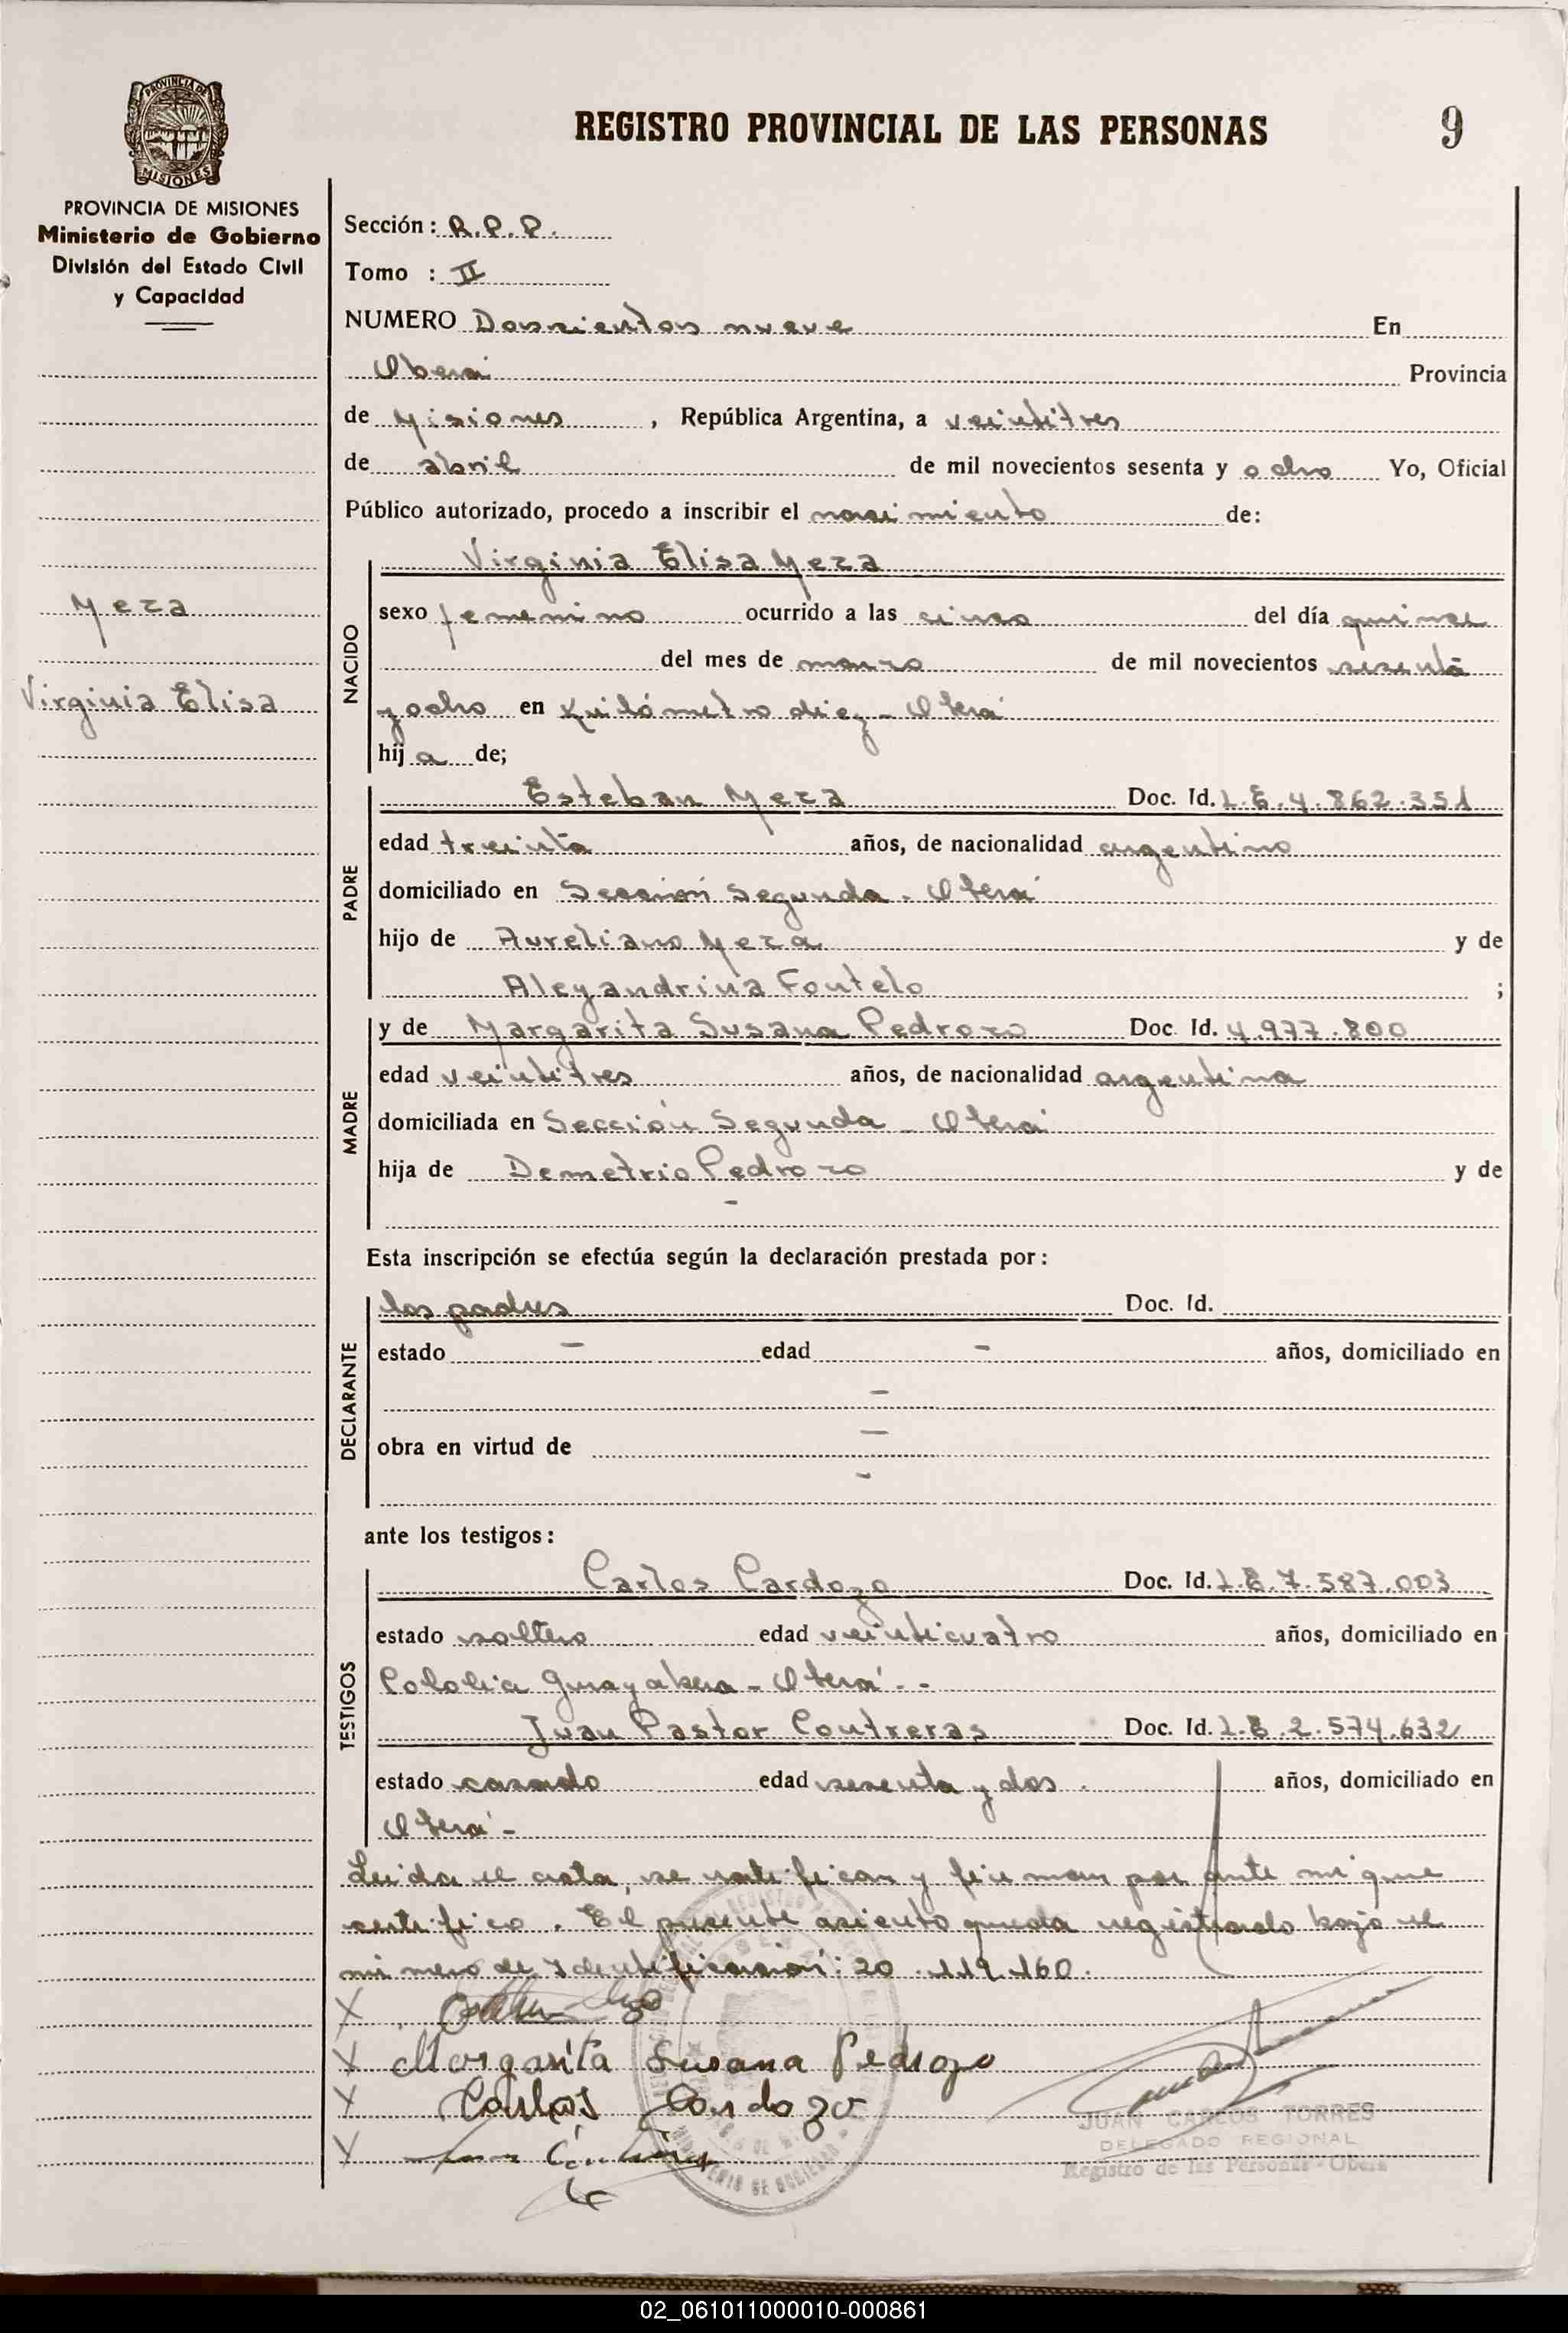 PROVINCIA DE
MISIONES
PROVINCIA DE MISIONES
Ministerio de Gobierno
División del Estado Civil
y Capacidad
Meza
Virginia Elisa
REGISTRO PROVINCIAL DE LAS PERSONAS 9
Sección: R.P.P.
Tomo : II
NUMERO Doscientos nueve En
Oberá Provincia
de Misiones , República Argentina, a veintitres
de abril de mil novecientos sesenta y ocho Yo, Oficial
Público autorizado, procedo a inscribir el nacimiento de:
NACIDO
Virginia Elisa Meza
sexo femenino ocurrido a las cinco del día quince
del mes de marzo de mil novecientos sesenta
y ocho en Kilómetro diez - Oberá
hij a de;
PADRE
Esteban Meza Doc. Id. L.E.4.862.351
edad treinta años, de nacionalidad argentino
domiciliado en Sección Segunda - Oberá
hijo de Aureliano Meza y de
Aleyandrina Foutelo ;
MADRE
y de Margarita Susana Pedrozo Doc. Id. 4.977.800
edad veintitres años, de nacionalidad argentina
domiciliada en Sección Segunda - Oberá
hija de Demetrio Pedrozo y de
-
Esta inscripción se efectúa según la declaración prestada por:
DECLARANTE
los padres Doc. Id.
estado - edad - años, domiciliado en
-
obra en virtud de -
-
ante los testigos:
TESTIGOS
Carlos Cardozo Doc. Id. L.E.7.587.003
estado soltero edad veinticuatro años, domiciliado en
Guayabera - Oberá - -
Juan Pastor Contreras Doc. Id. L.E.2.574.632
estado casado edad sesenta y dos . años, domiciliado en
Oberá -
Leida el acta, se ratifican y firman por ante mi que
certifico . El presente asiento queda registrado bajo el
número de Identificación: 20.119.160.
X
X Margarita Susana Pedrozo
X Carlos Cardozo
X
JUAN CARLOS TORRES
DELEGADO REGIONAL
Registro de las Personas - Oberá
02_061011000010-000861